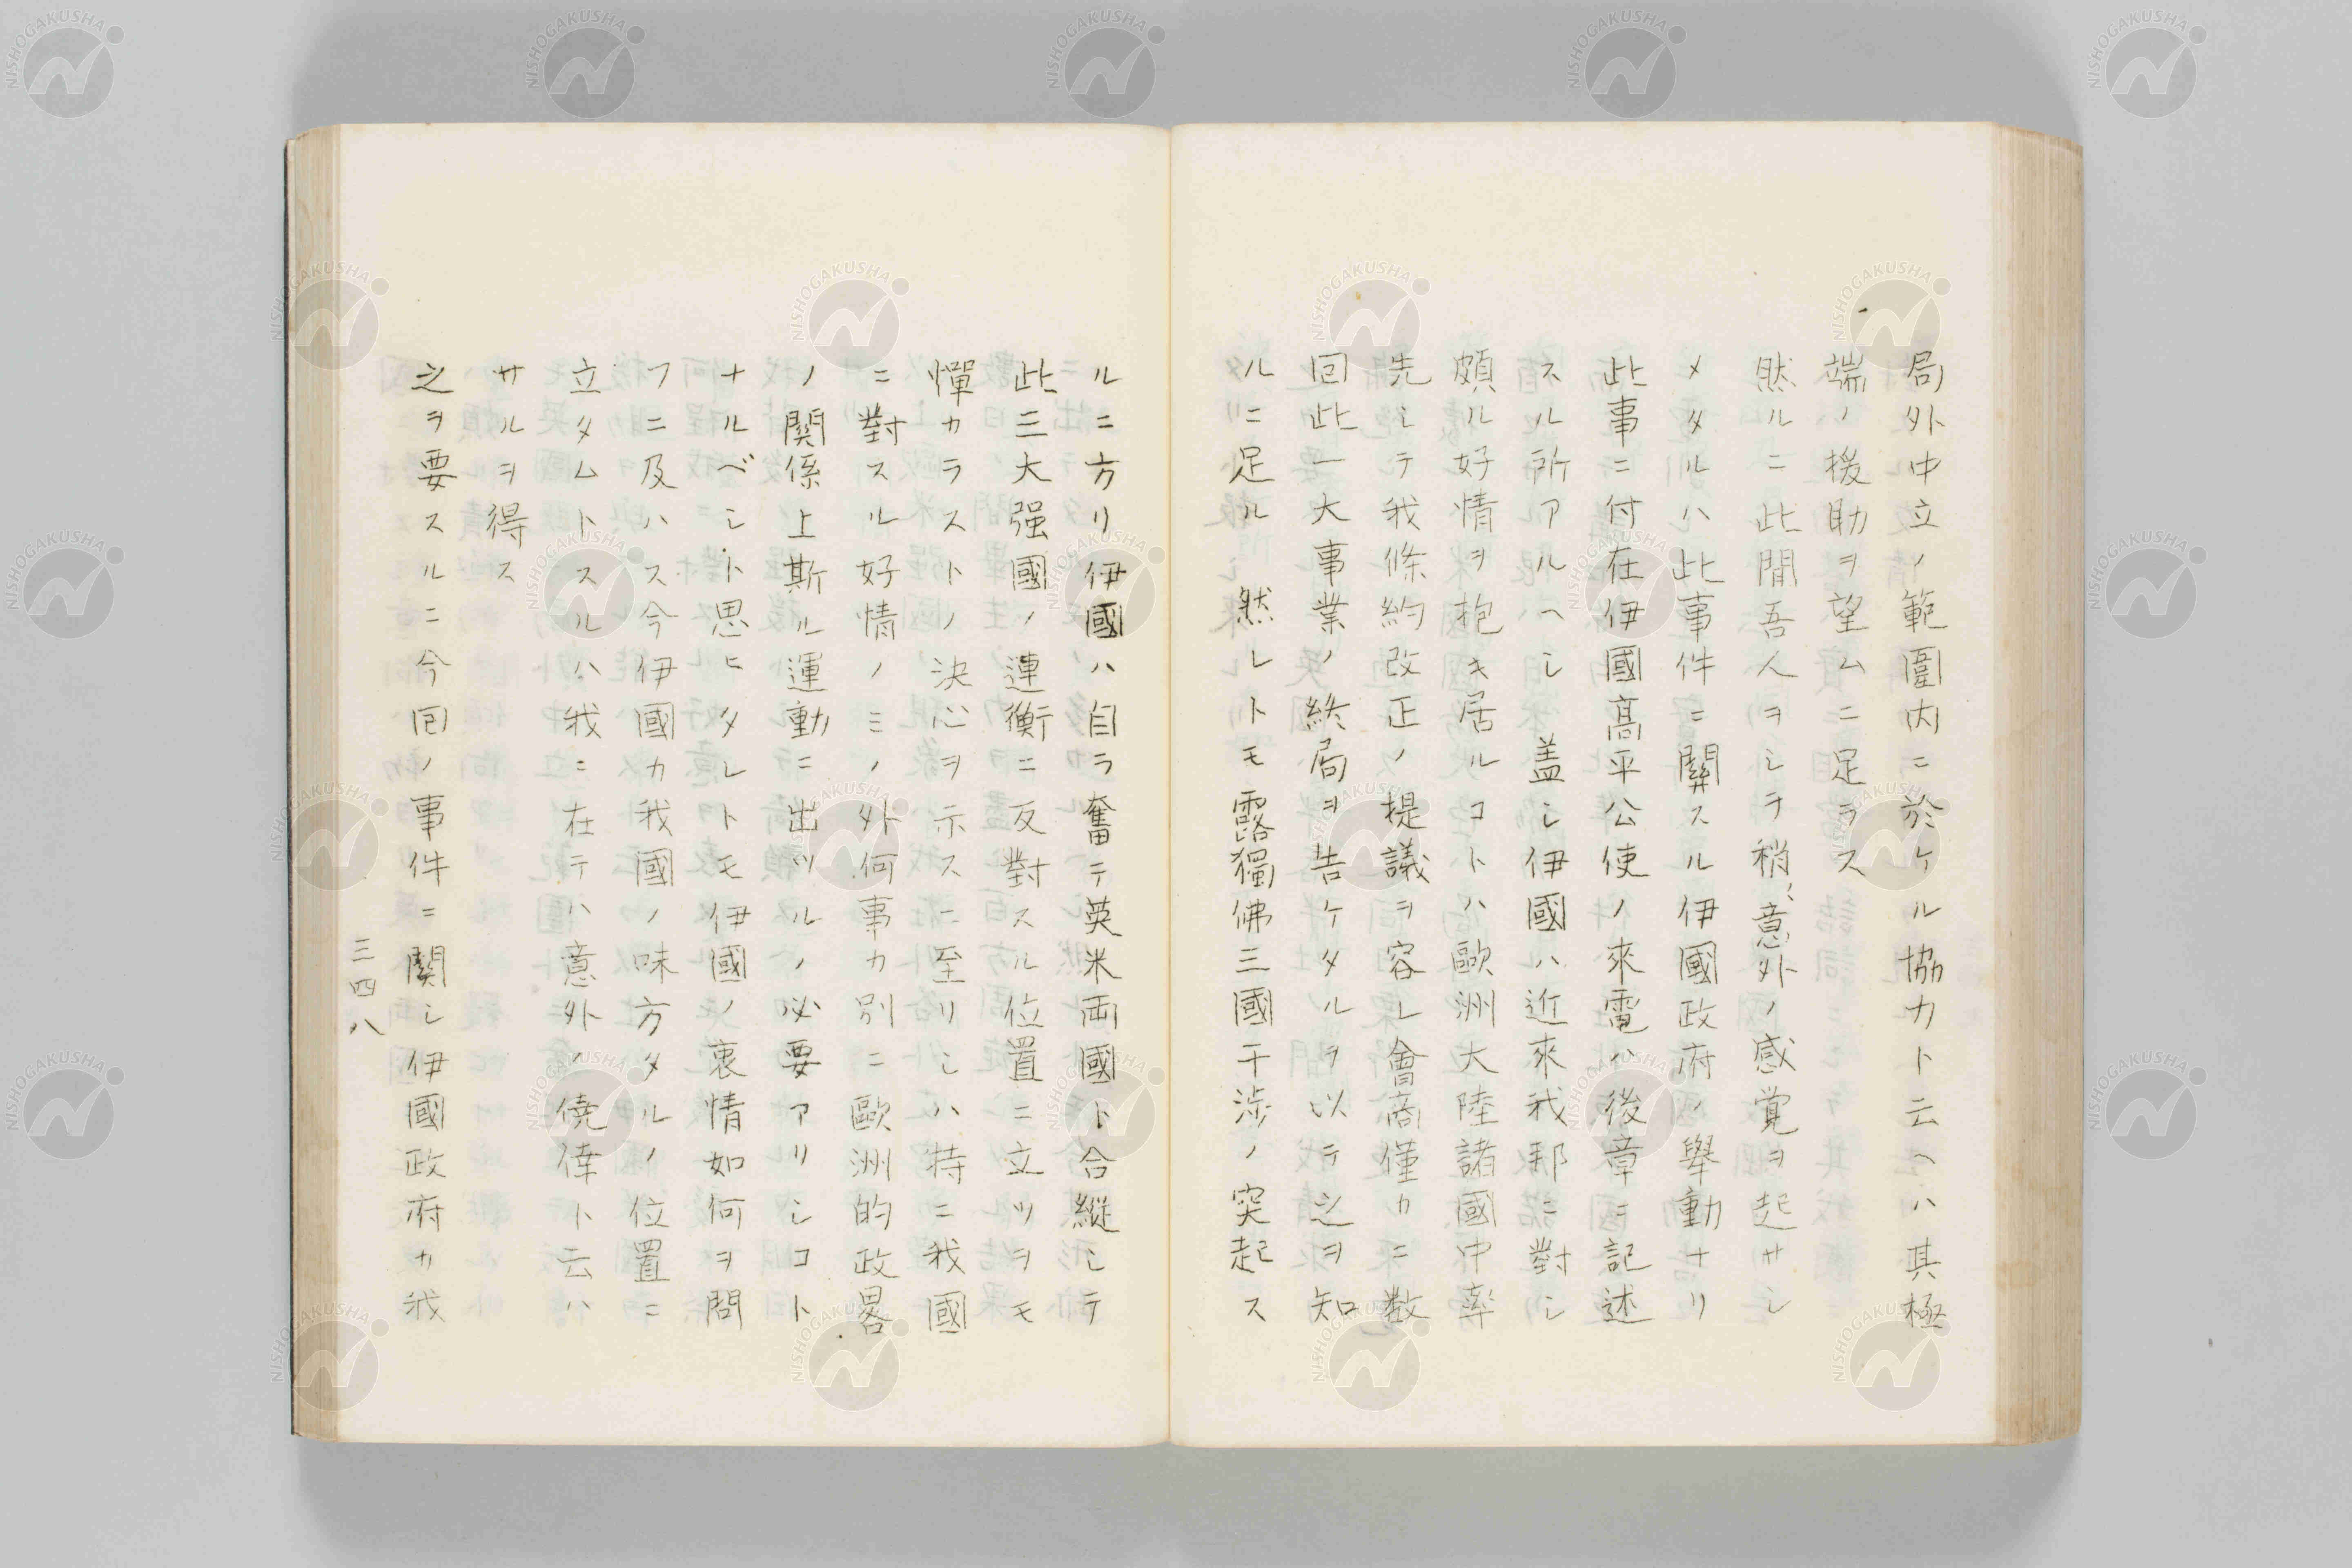 局外中立ノ範圍内ニ於ケル協力ト云ヘハ其極
端ノ援助ヲ望ムニ足ラス
然ルニ此間吾人ヲシテ稍〻意外ノ感覚ヲ起サシ
メタルハ此事件ニ關スル伊國政府ノ擧動ナリ
此事ニ付在伊國髙平公使ノ來電ハ後章ニ記述
スル所アルヘシ盖シ伊國ハ近來我邦ニ對シ
頗ル好情ヲ抱キ居ルコトハ歐洲大陸諸國中率
先シテ我條約改正ノ提議ヲ容レ會商僅カニ数
回此一大事業ノ終局ヲ告ケタルヲ以テ之ヲ知
ルニ足ル然レトモ露獨佛三國干渉ノ突起ス
ルニ方リ伊國ハ自ラ奮テ英米両國ト合縦シテ
此三大强國ノ連衡ニ反對スル位置ニ立ツヲモ
憚カラストノ決心ヲ示スニ至リシハ特ニ我國
ニ對スル好情ノミノ外何事カ別ニ歐洲的政畧
ノ関係上斯ル運動ニ出ツルノ必要アリシコト
ナルベシト思ヒタレトモ伊國ノ衷情如何ヲ問
フニ及ハス今伊國カ我國ノ味方タルノ位置ニ
立タムトスルハ我ニ在テハ意外ノ僥倖ト云ハ
サルヲ得ス
之ヲ要スルニ今回ノ事件ニ関シ伊國政府カ我
三四八
NISHOGAKUSHA